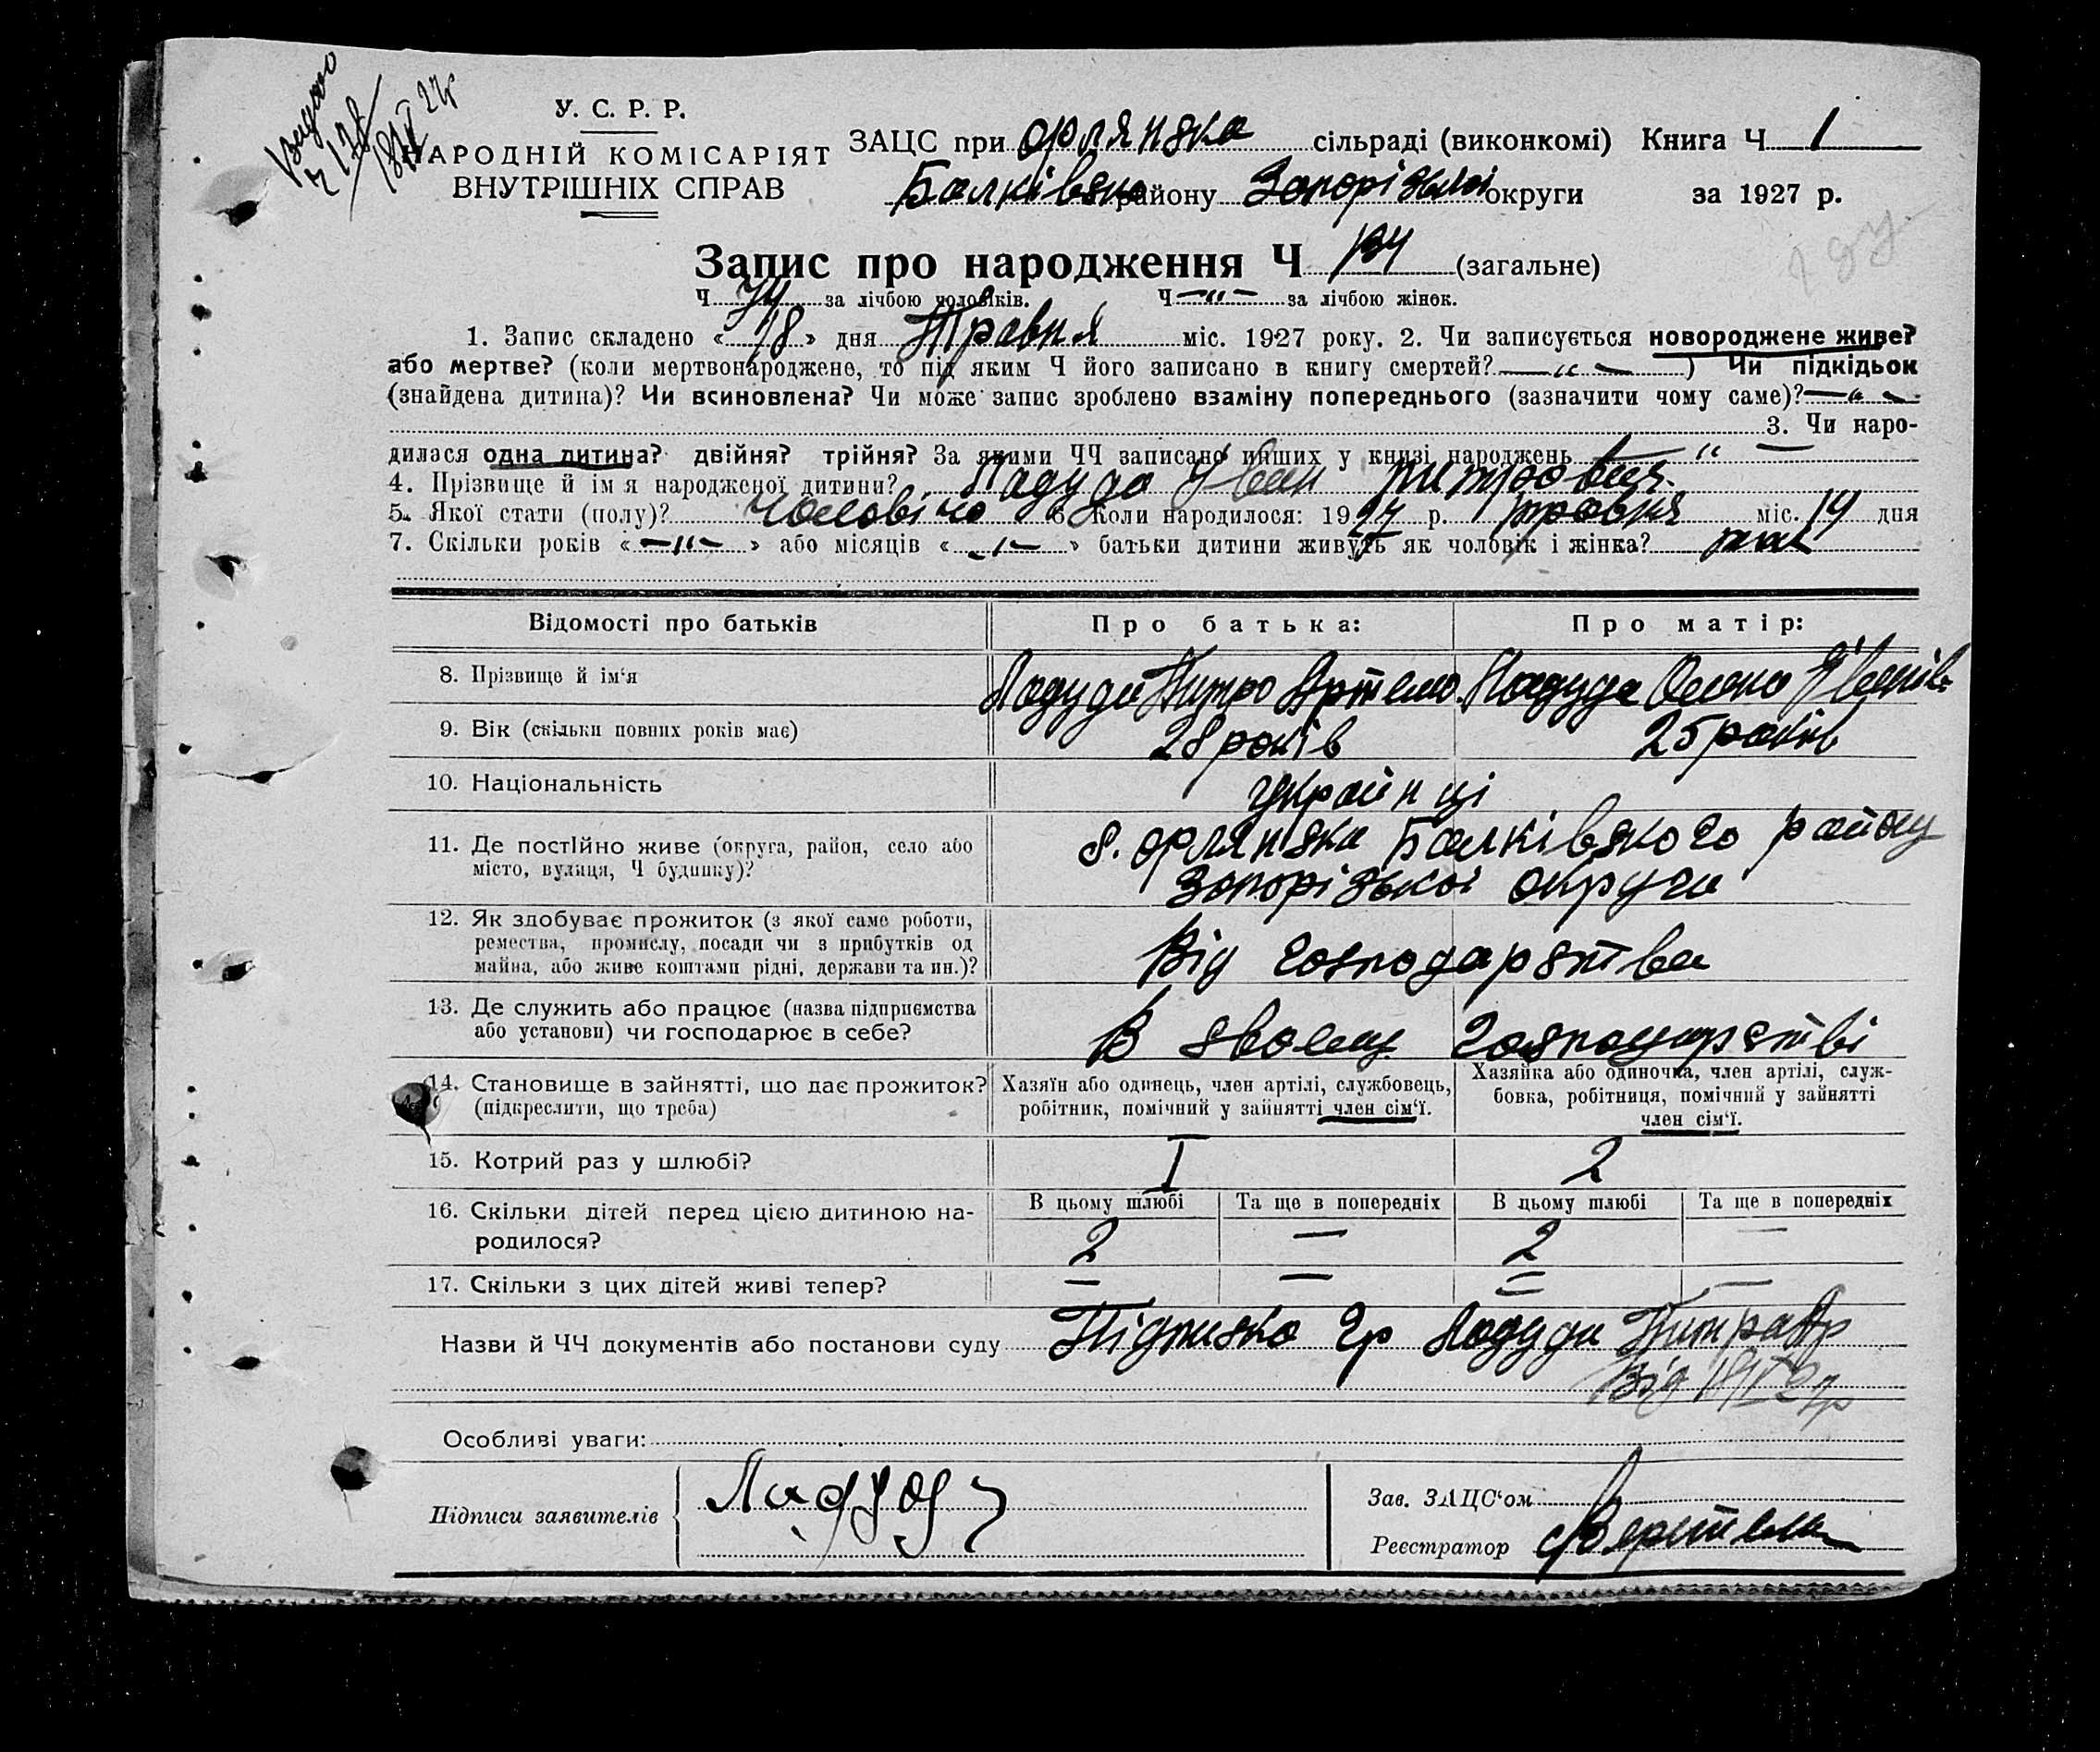 Видано
У. С. Р. Р.
НАРОДНІЙ КОМІСАРІЯТ
ВНУТРІШНІХ СПРАВ
ЗАЦС при Орлянська сільраді (виконкомі) Книга Ч 1
Балківсько району Запорізької округи за 1927 р.
Запис про народження Ч (загальне)
Ч 74 за лічбою чоловіків. Ч —"— за лічбою жінок.
1. Запис складено «18» дня Травня міс. 1927 року. 2. Чи записується новороджене живе?
або мертве? (коли мертвонароджене, то під яким Ч його записано в книгу смертей? —"— ) Чи підкідьок
(знайдена дитина)? Чи всиновлена? Чи може запис зроблено взаміну попереднього (зазначити чому саме)? —"—
3. Чи наро-
дилася одна дитина? двійня? трійня? За якими ЧЧ записано инших у книзі народжень —"—
4. Прізвище й ім'я народженої дитини? Ладуда Іван
5. Якої стати (полу)? Чоловічо 6. Коли народилося: 1927 р. травня міс. 14 дня
7. Скільки років «—"—» або місяців «—"—» батьки дитини живуть як чоловік і жінка?
Відомості про батьків Про батька: Про матір:
8. Прізвище й ім'я Ладуда Питро Артемо Ладуда Олена
9. Вік (скільки повних років має) 28 років 25 років
10. Національність Українці
11. Де постійно живе (округа, район, село або с. Орлянська Балківського району
місто, вулиця, Ч будинку)? Запорізької округи
12. Як здобуває прожиток (з якої саме роботи,
ремества, промислу, посади чи з прибутків од Від господарства
майна, або живе коштами рідні, держави та ин.)?
13. Де служить або працює (назва підприємства
або установи) чи господарює в себе? В своему господарстві
14. Становище в зайнятті, що дає прожиток? Хазяїн або одинець, член артілі, службовець, Хазяйка або одиночка, член артілі, служ-
(підкреслити, що треба) робітник, помічний у зайнятті член сім'ї. бовка, робітниця, помічний у зайнятті
член сім'ї.
15. Котрий раз у шлюбі? I 2
16. Скільки дітей перед цією дитиною на- В цьому шлюбі Та ще в попередніх В цьому шлюбі Та ще в попередніх
родилося? 2 — 2 —
17. Скільки з цих дітей живі тепер? — — = —
Назви й ЧЧ документів або постанови суду Підписка гр Ладуди Питра Ар
Від
Особливі уваги:
Підписи заявителів Ладуда
Зав. ЗАЦС'ом
Реєстратор